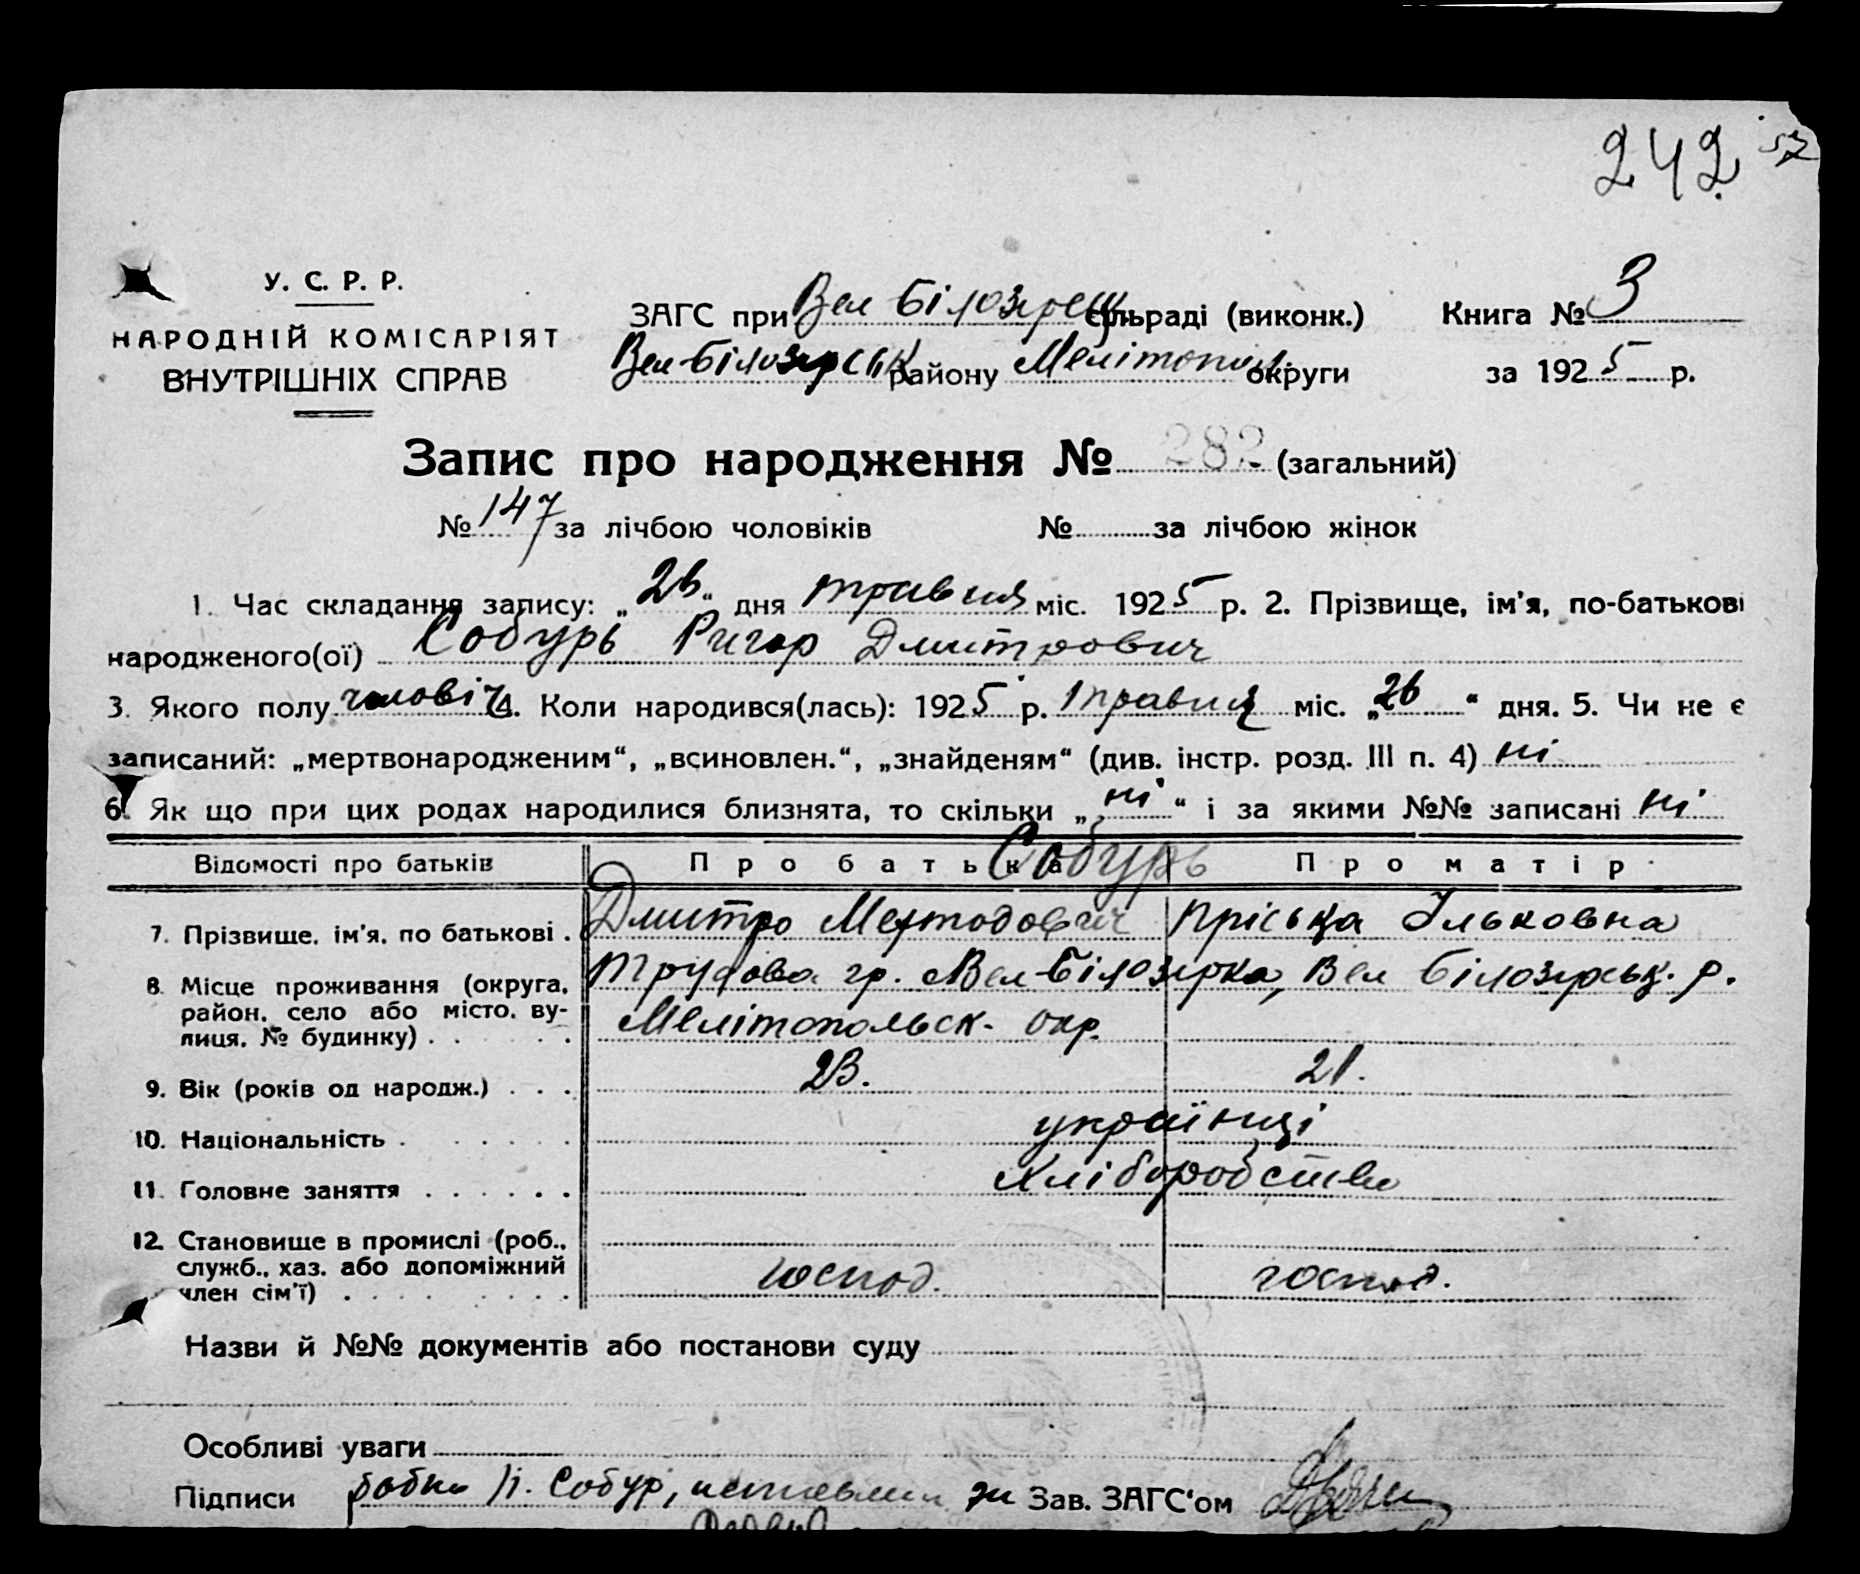 242 57
У. С. Р. Р.
НАРОДНІЙ КОМІСАРІЯТ
ВНУТРІШНІХ СПРАВ
ЗАГС при Вел Білозірськ сільраді (виконк.) Книга № 3
Вел-Білозірськ району Мелітопол. округи за 1925 р.
Запис про народження № 282 (загальний)
№ 147 за лічбою чоловіків № за лічбою жінок
1. Час складання запису: „26“ дня травня міс. 1925 р. 2. Прізвище, ім'я, по-батькові
народженого(ої) Собурь Ригор Дмитрович
3. Якого полу чоловіч. 4. Коли народився(лась): 1925 р. травня міс. „26“ дня. 5. Чи не є
записаний: „мертвонародженим“, „всиновлен.“, „знайденям“ (див. інстр. розд. III п. 4) ні
6. Як що при цих родах народилися близнята, то скільки „ні“ і за якими №№ записані ні
Відомості про батьків Про батька Про матір
Собурь
7. Прізвище, ім'я, по батькові . Дмитро Мефтодович Пріська Ільковна
8. Місце проживання (округа, район, село або місто, вулиця, № будинку) . Трудова гр. Вел-Білозірка, Вел Білозірськ. р.
Мелітопольск. окр.
9. Вік (років од народж.) . . . 23. 21.
10. Національність . українці
11. Головне заняття . . . . . . Хліборобство
12. Становище в промислі (роб., служб., хаз. або допоміжний член сім'ї) . господ. господ.
Назви й №№ документів або постанови суду
Особливі уваги
Підписи Собур, Зав. ЗАГС'ом